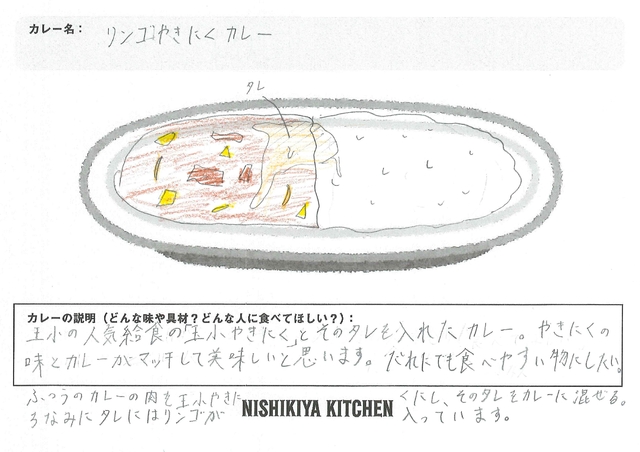 カレー名：
リンゴやきにくカレー
タレ
カレーの説明（どんな味や具材？どんな人に食べてほしい？）：
玉小の人気給食の「玉小やきにく」とそのタレを入れたカレー。やきにくの
味とカレーがマッチして美味しいと思います。だれにでも食べやすい物にしたい。
ふつうのカレーの肉を玉小やきにくにし、そのタレをカレーに混ぜる。
ちなみにタレにはリンゴが入っています。
NISHIKIYA KITCHEN